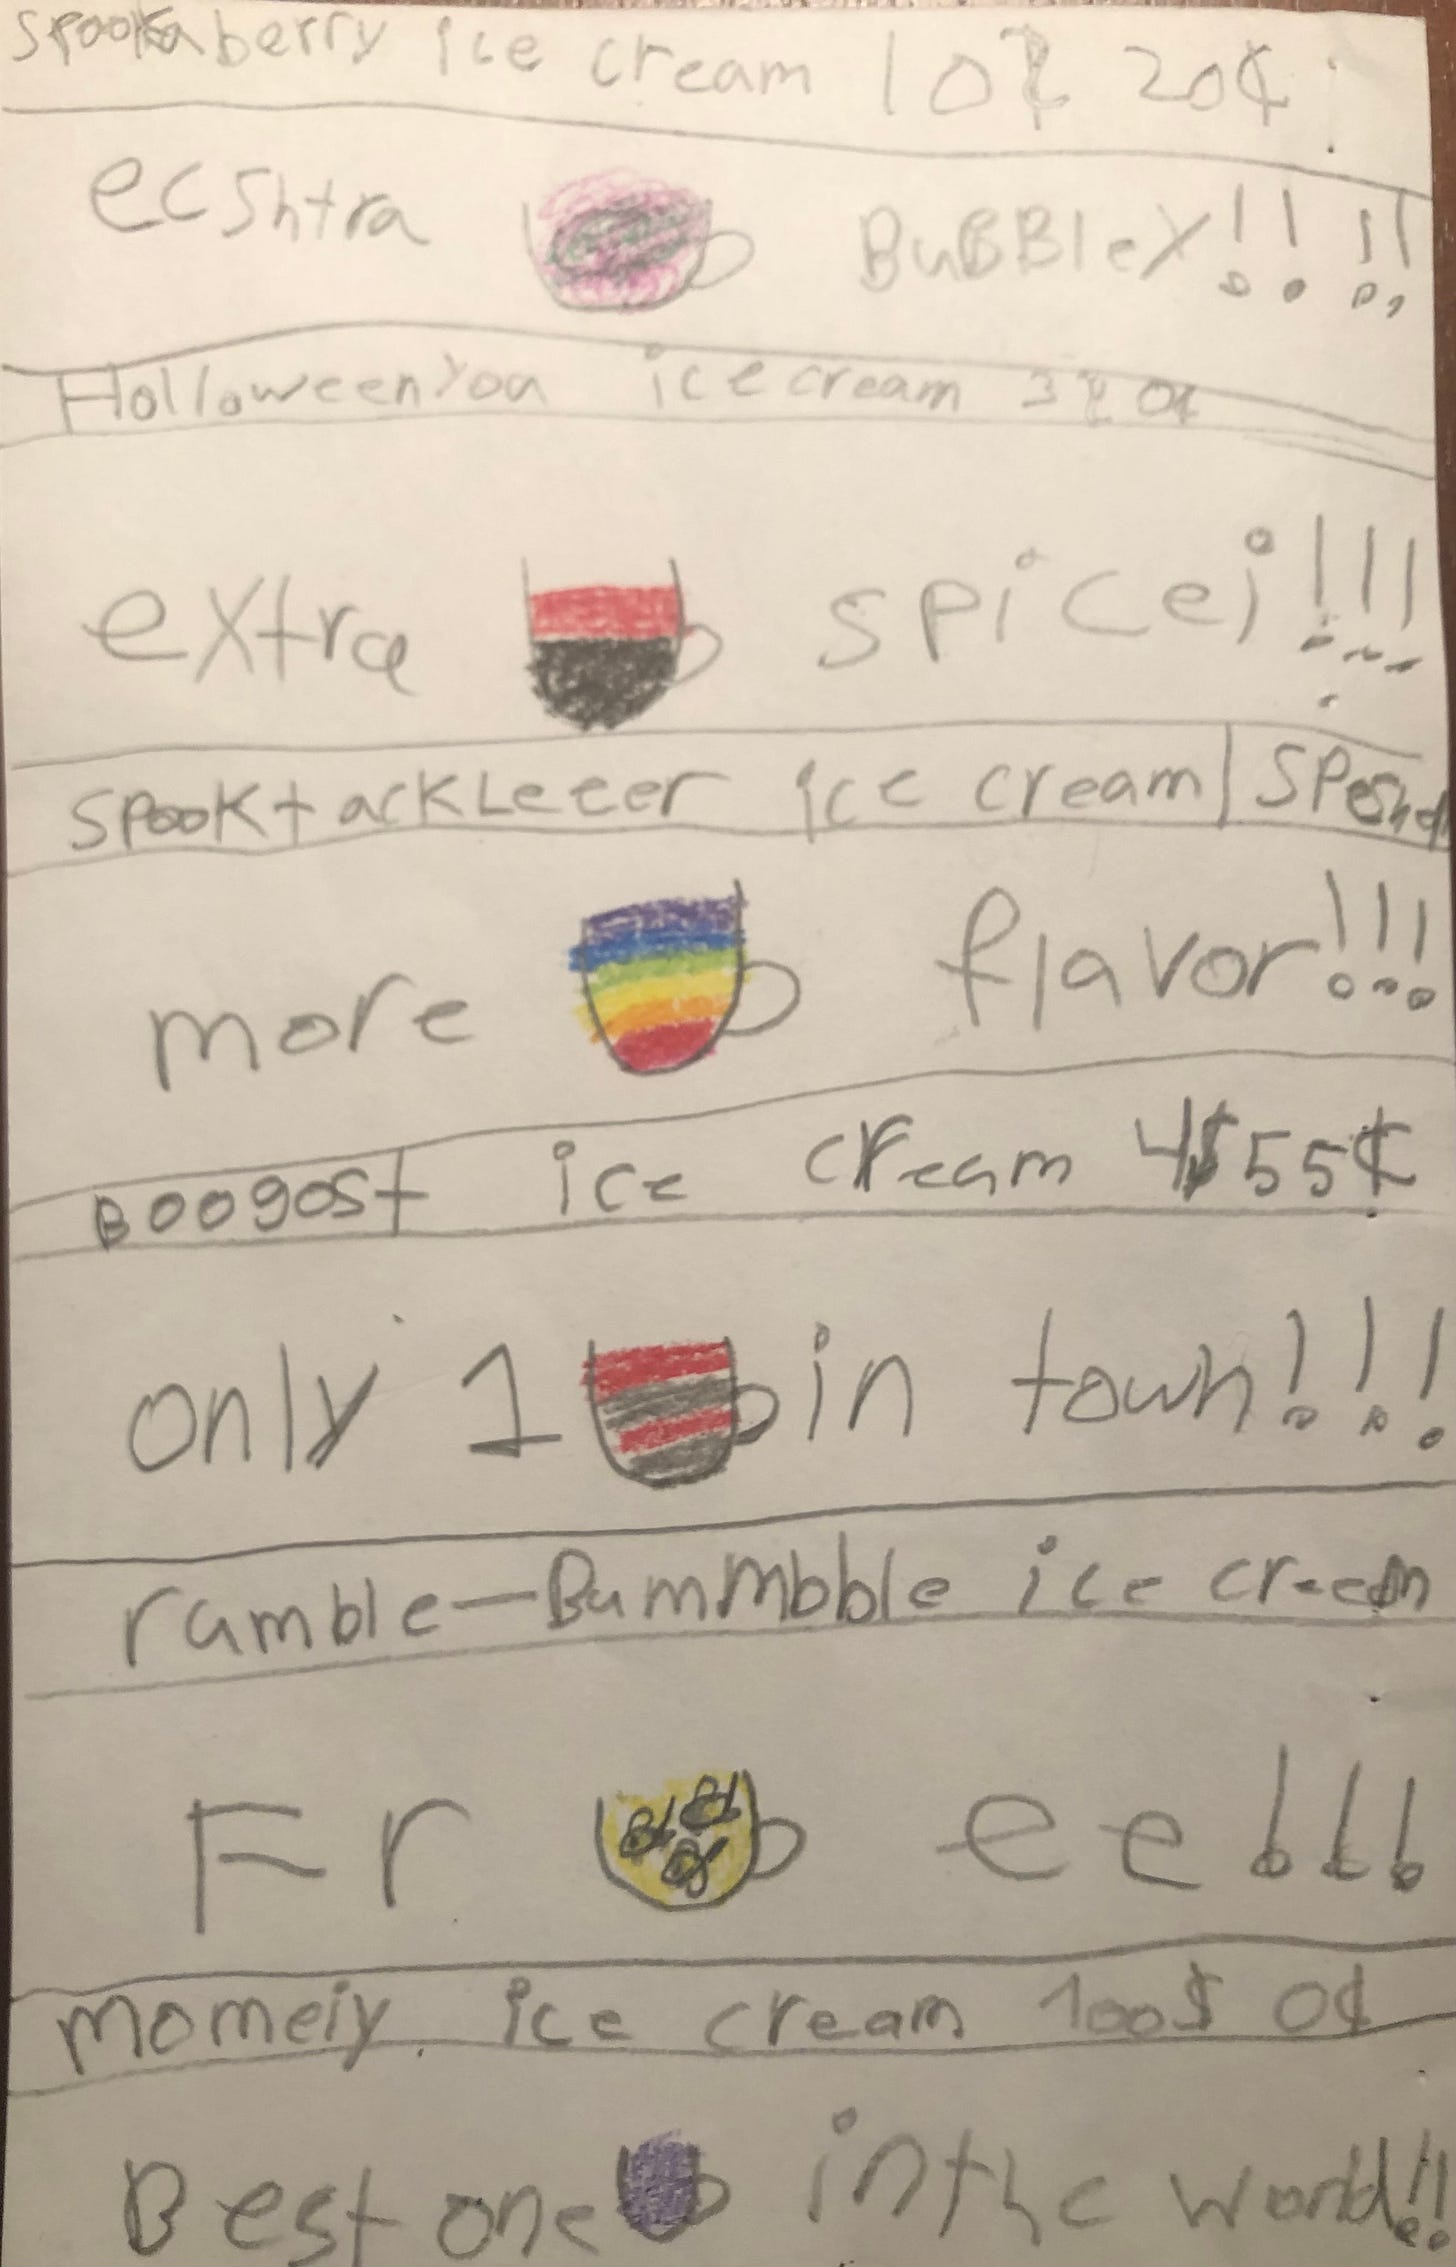 spookaberry ice cream 10$ 20¢
ecshtra BuBBleY!!!!
Holloweenyoa ice cream 3$ 0¢
extra spicei!!!
spooktackLeeer ice cream | SPeshel
more flavor!!!
Boogost ice cream 4$ 55¢
only 1 in town!!!
rumble-Bummmbble ice creem
Free!!!
momeiy ice cream 100$ 0¢
Best one in the world!!